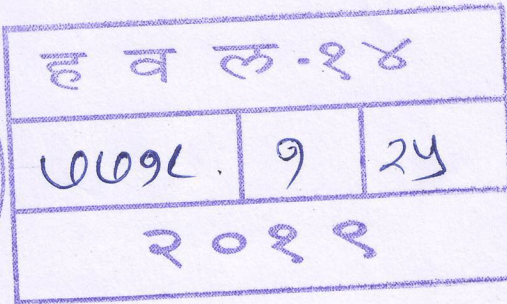 ह व ल-१४
७७१८. १ २५
२०१९